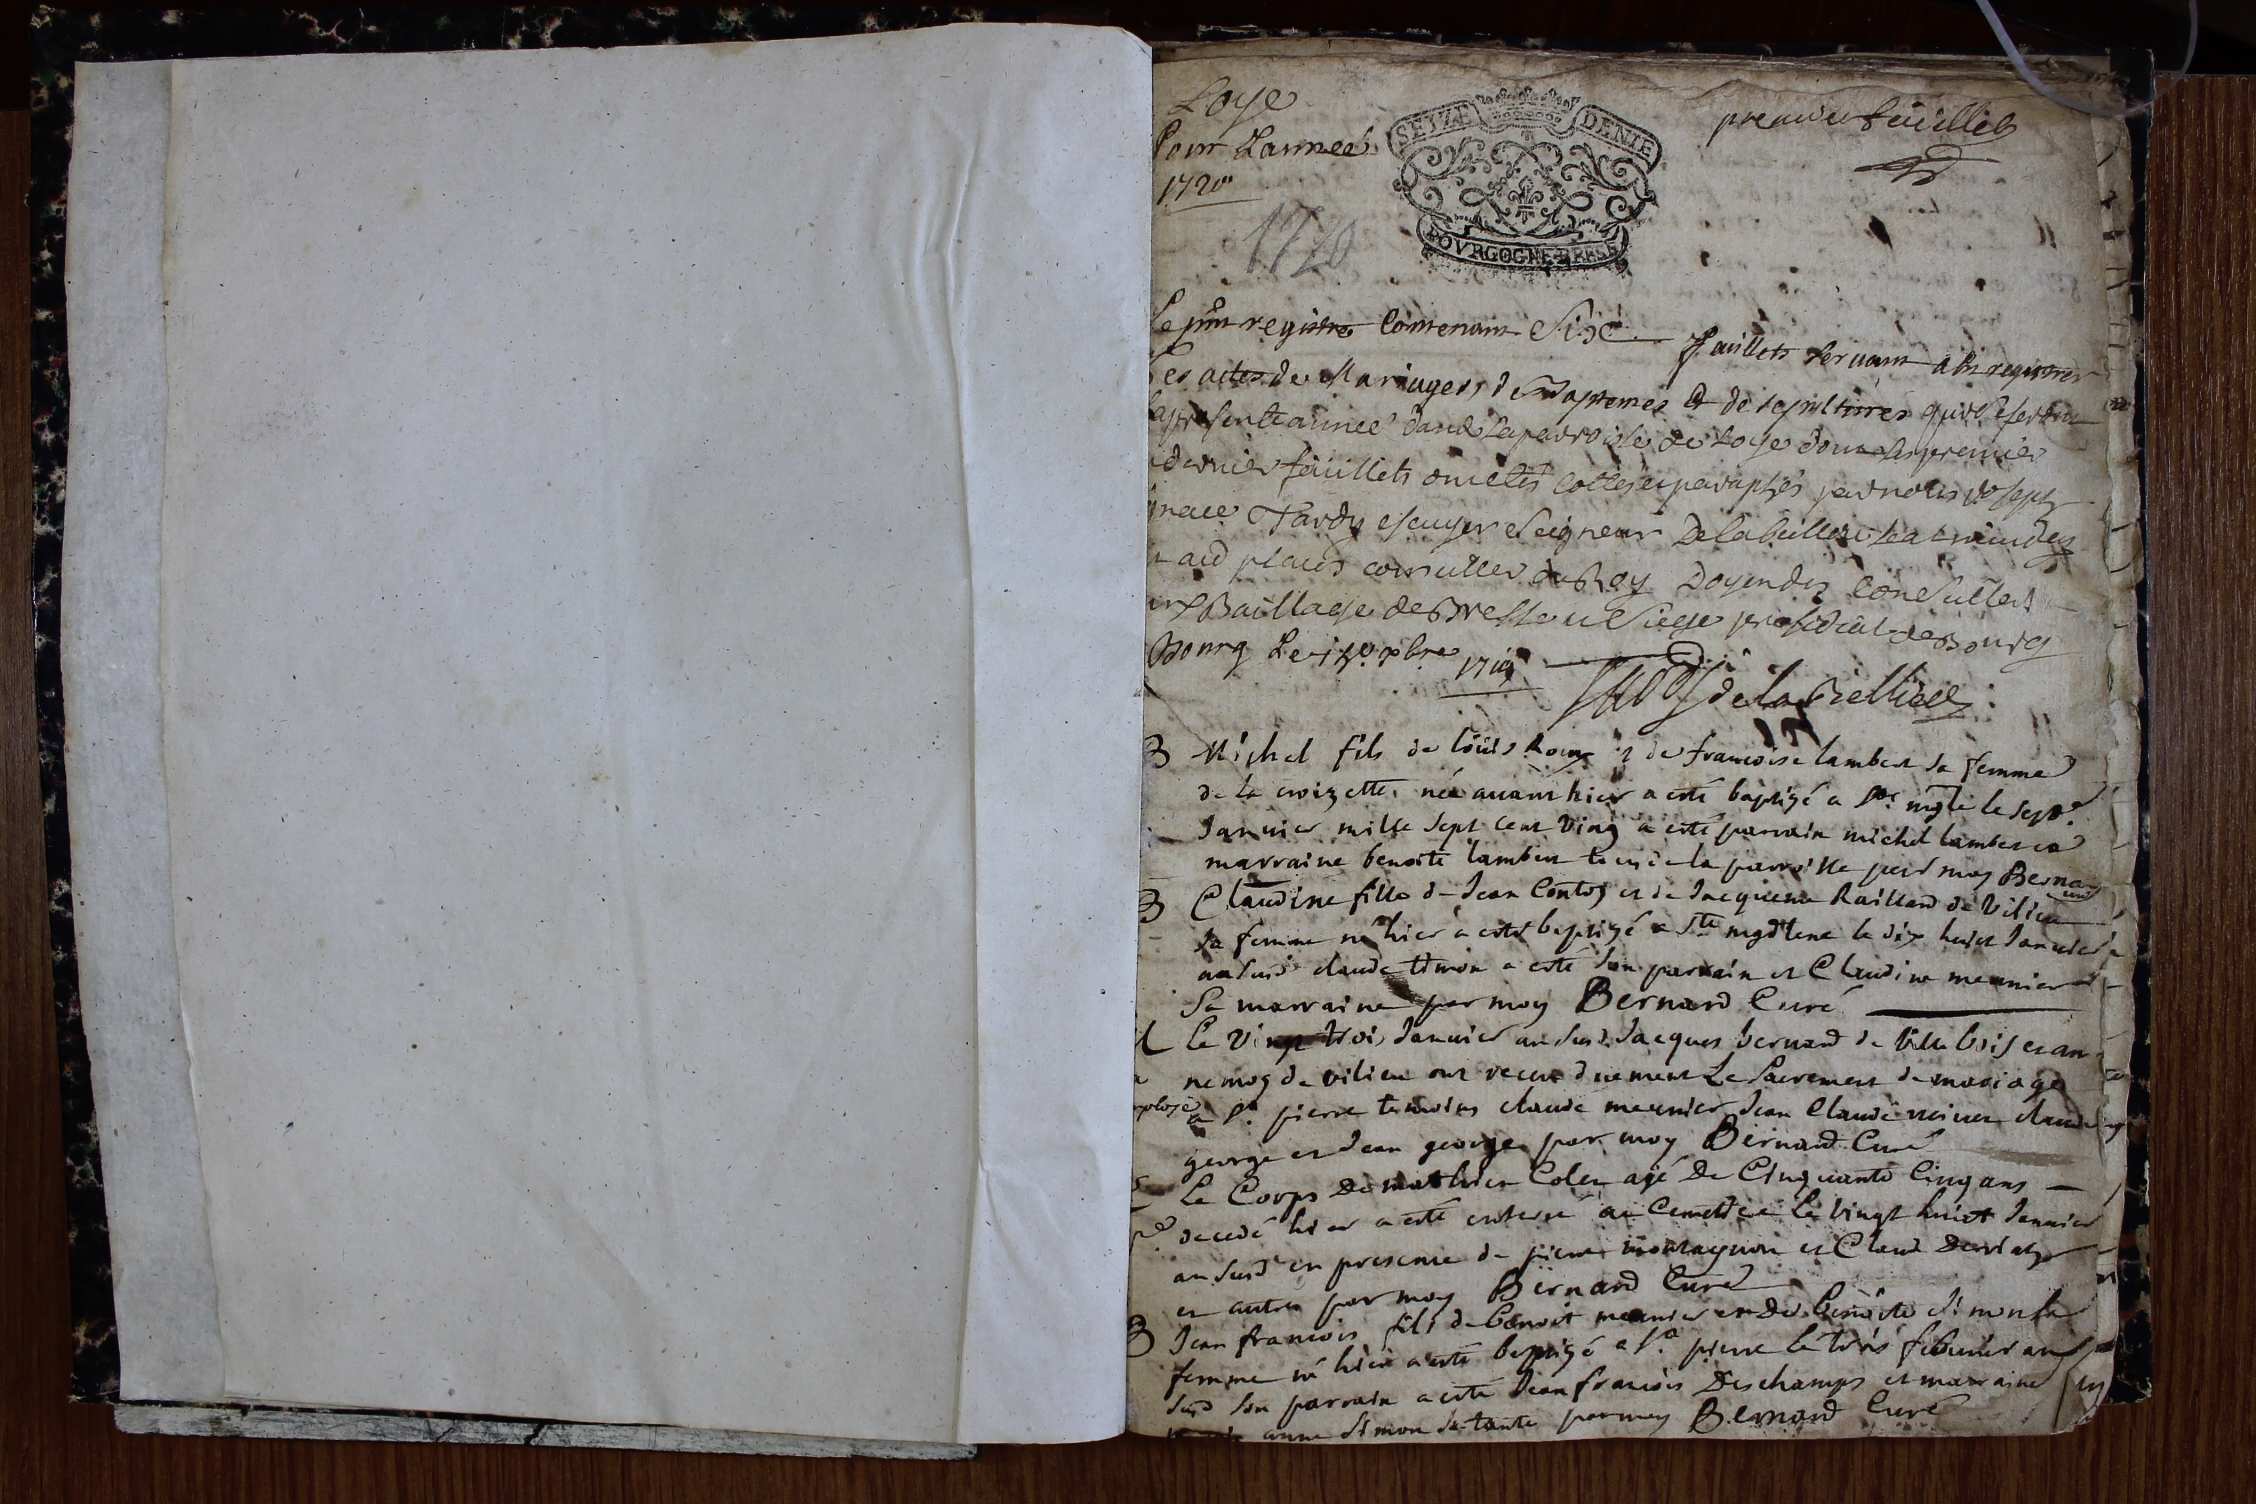 Loye
Pour Lannee
1720
1720
SEIZE DENIE
BOVRGOGNE BRESSE
premier feüillet
Le pnt registre Contenant Sixe feuillets servant a Enregistrer
Les actes de Mariages, de Baptemes et de sepultures qui se feront
La presente année dans La parroisse de Loye dont les premier
dernier feüillets ont etés Cottes et paraphés par nous Joseph
Tardy escuyer Seigneur De la
conseiller du Roy Doyen des Conseillers
Baillage de Bresse et Siege presidial de Bourg
Bourg Le 1719
de la Belliere
B Michel fils de loüis Roux et de francoise lambert sa femme
de la croizette né avant hier a esté baptizé a ste mgde le sept
Janvier mille sept cent Ving a esté parrain michel lambert et
marraine benoite lambert tous de la parroisse par moy Bernard
curé
B Claudine fille de Jean Contoz et de Jacquema Railland de Villieu
sa femme né hier a esté baptizé a Ste mgdlene le dix huict Janvier
an susd claude Simon a esté son parrain et Claudine meunier
Sa marraine par moy Bernard Curé
M Le Vingt trois Janvier an susd. Jacques bernard de Villebois et an
ne moz de vilieu ont receu duement Le Sacrement de mariage
a St. pierre temoins claude meunier Jean Claude claude
george et Jean george par moy Bernard Curé
Le Corps De mathieu Colet agé De Cinquante Cinq ans
decedé hier a esté enterré au Cemettiere le vingt huict Janvier
an susd en presence de pierre montagnon et Claude
et autres par moy Bernard Curé
B Jean francois fils de Benoit meunier et De Benoite Simon sa
femme né hier a esté baptizé a St. pierre le trois febvrier an
susd son parrain a esté Jean francois Deschamps et marraine
anne Simon sa tante par moy Bernard Curé